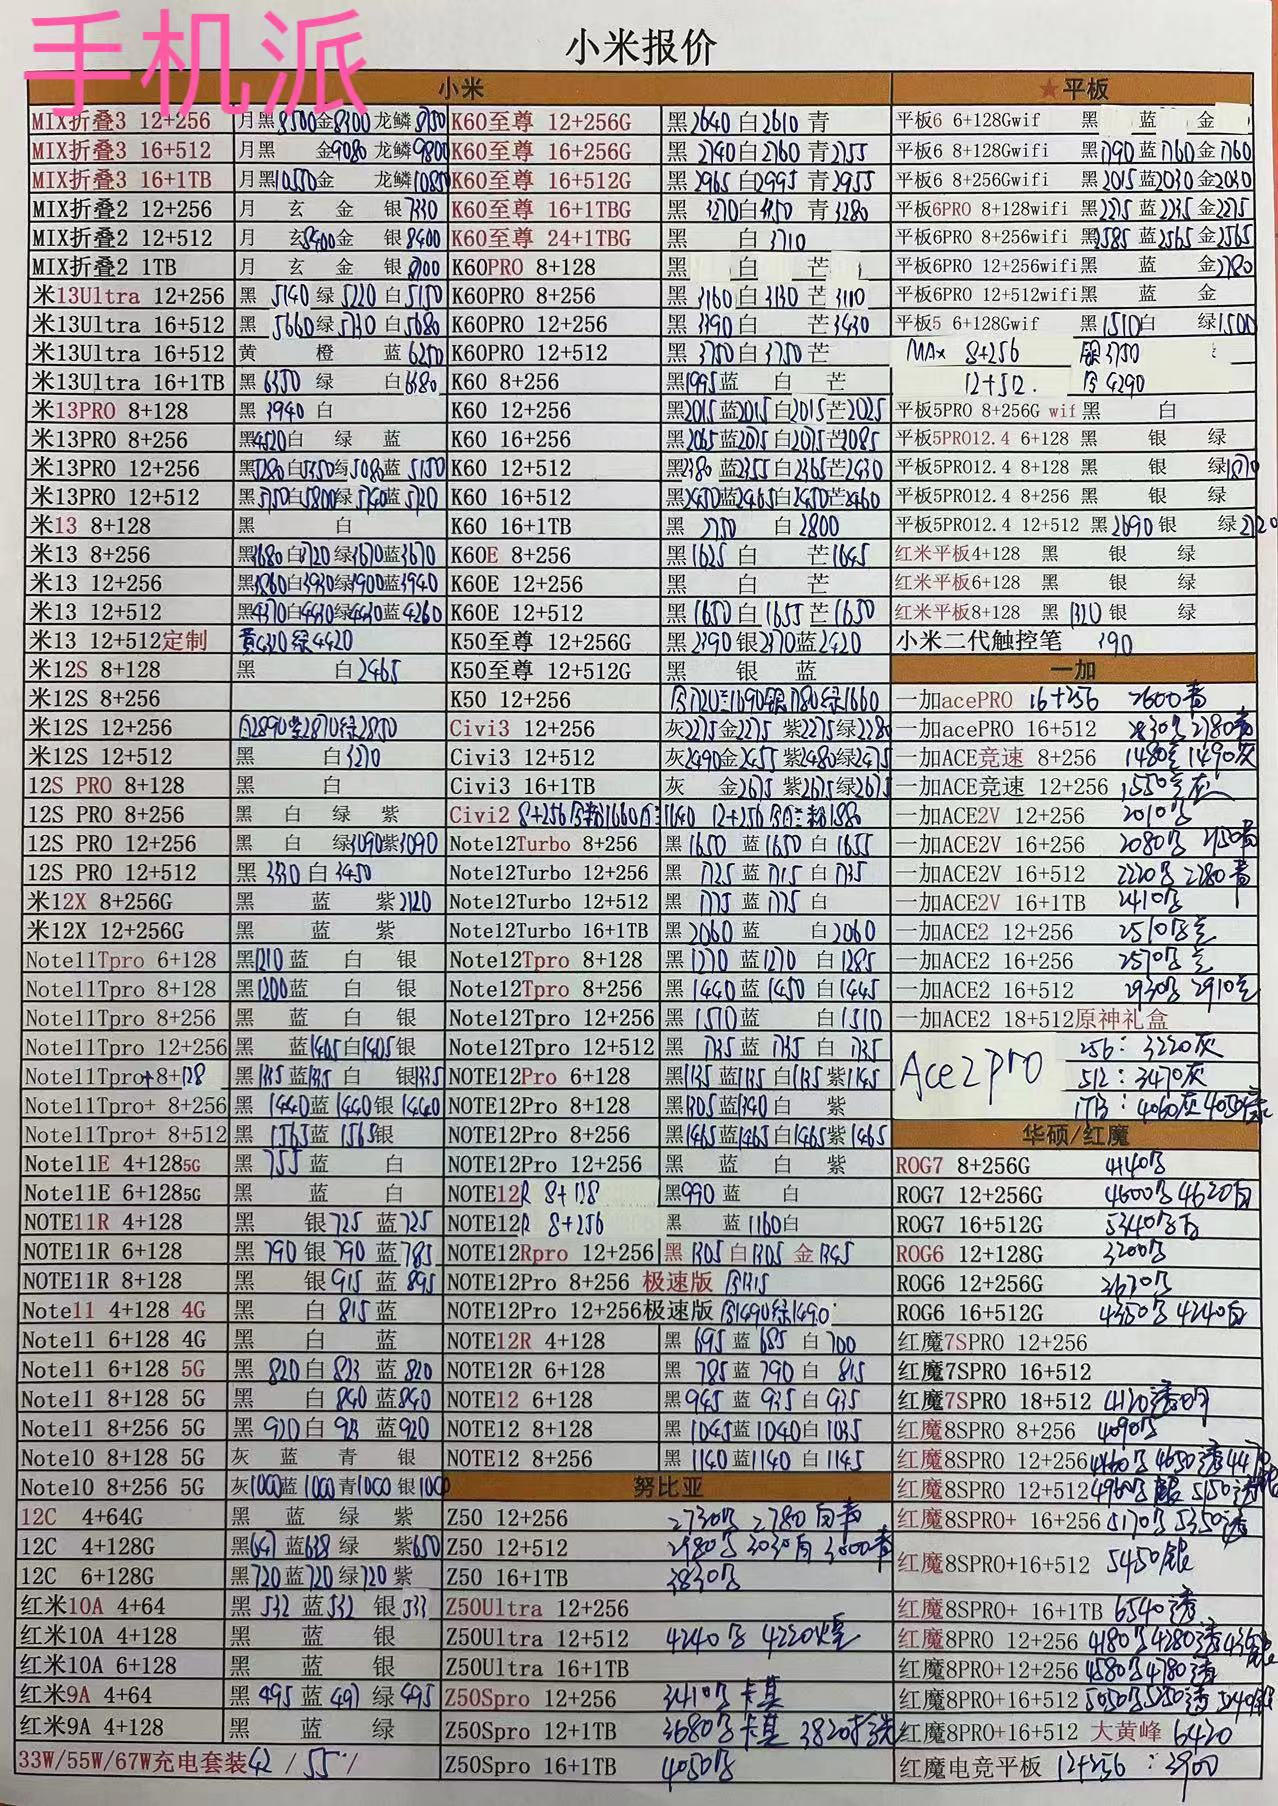 手机派
小米报价
小米
MIX折叠3 12+256 月黑8500金8400龙鳞8750
MIX折叠3 16+512 月黑 金9080 龙鳞9800
MIX折叠3 16+1TB 月黑10550金 龙鳞
MIX折叠2 12+256 月 玄 金 银7330
MIX折叠2 12+512 月 玄8400金 银8400
MIX折叠2 1TB 月 玄 金 银
米13Ultra 12+256 黑 5140 绿 5220 白5150
米13Ultra 16+512 黑 5660绿 5730 白5680
米13Ultra 16+512 黄 橙 蓝 6250
米13Ultra 16+1TB 黑 6350 绿 白6380
米13PRO 8+128 黑 3940 白
米13PRO 8+256 黑4520白 绿 蓝
米13PRO 12+256 黑5280白5350绿5080蓝 5150
米13PRO 12+512 黑5750白5800绿 5740蓝 5720
米13 8+128 黑 白
米13 8+256 黑3680白3720绿3670蓝3670
米13 12+256 黑3860白3930绿3900蓝3940
米13 12+512 黑4370白4430绿4430蓝4260
米13 12+512定制 黄4320绿4420
米12S 8+128 黑 白2465
米12S 8+256
米12S 12+256 白2890紫2870绿2850
米12S 12+512 黑 白3270
12S PRO 8+128 黑 白
12S PRO 8+256 黑 白 绿 紫
12S PRO 12+256 黑 白 绿3090紫3090
12S PRO 12+512 黑 3330白 3450
米12X 8+256G 黑 蓝 紫2120
米12X 12+256G 黑 蓝 紫
Note11Tpro 6+128 黑1210蓝 白 银
Note11Tpro 8+128 黑1200蓝 白 银
Note11Tpro 8+256 黑 蓝 白 银
Note11Tpro 12+256 黑 蓝1405白1405银
Note11Tpro+8+128 黑1335蓝1335白 银1335
Note11Tpro+ 8+256 黑 1440蓝 1440银 1440
Note11Tpro+ 8+512 黑 1565蓝 1565银
Note11E 4+1285G 黑 755 蓝 白
Note11E 6+1285G 黑 蓝 白
NOTE11R 4+128 黑 银725 蓝725
NOTE11R 6+128 黑 790 银 790 蓝 785
NOTE11R 8+128 黑 银 915 蓝 895
Note11 4+128 4G 黑 白 815 蓝
Note11 6+128 4G 黑 白 蓝
Note11 6+128 5G 黑 820 白 823 蓝 820
Note11 8+128 5G 黑 白 840 蓝840
Note11 8+256 5G 黑 920白 923 蓝920
Note10 8+128 5G 灰 蓝 青 银
Note10 8+256 5G 灰1000蓝 1000 青1000 银1000
12C 4+64G 黑 蓝 绿 紫
12C 4+128G 黑641 蓝638 绿 紫650
12C 6+128G 黑720蓝720绿720 紫
红米10A 4+64 黑 532 蓝532 银533
红米10A 4+128 黑 蓝 银
红米10A 6+128 黑 蓝 银
红米9A 4+64 黑 495 蓝 491 绿495
红米9A 4+128 黑 蓝 绿
33W/55W/67W充电套装42 / 55 /
K60至尊 12+256G 黑2640 白2610 青
K60至尊 16+256G 黑 2740白2760 青2755
K60至尊 16+512G 黑 2965 白2995 青2955
K60至尊 16+1TBG 黑 3270白 青3280
K60至尊 24+1TBG 黑 白3710
K60PRO 8+128 黑 白 芒
K60PRO 8+256 黑 3160 白3130 芒3110
K60PRO 12+256 黑 3390 白 芒3430
K60PRO 12+512 黑 3750白3750芒
K60 8+256 黑1995蓝 白 芒
K60 12+256 黑2015蓝2015白2015芒2025
K60 16+256 黑2065蓝2075白2075芒2085
K60 12+512 黑2380蓝2355白2365芒2430
K60 16+512 黑2450蓝2465白2450芒2460
K60 16+1TB 黑 2750 白2800
K60E 8+256 黑1625 白 芒1645
K60E 12+256 黑 白 芒
K60E 12+512 黑1650白1655芒1650
K50至尊 12+256G 黑2390银2370蓝2420
K50至尊 12+512G 黑 银 蓝
K50 12+256 银1780绿1660
Civi3 12+256 灰2275金2275 紫2275绿2280
Civi3 12+512 灰2490金2455 紫2480绿2475
Civi3 16+1TB 灰 金2675 紫2675绿2675
Civi2
Note12Turbo 8+256 黑1650 蓝1650白1655
Note12Turbo 12+256 黑 1725 蓝1715白1735
Note12Turbo 12+512 黑 1775 蓝1775 白
Note12Turbo 16+1TB 黑 2060 蓝 白2060
Note12Tpro 8+128 黑1270 蓝1270 白1285
Note12Tpro 8+256 黑1440蓝1450白1445
Note12Tpro 12+256 黑 1510蓝 白1510
Note12Tpro 12+512 黑 1735蓝 1735 白 1735
NOTE12Pro 6+128 黑1135蓝1135白1135紫1145
NOTE12Pro 8+128 黑1305蓝1340白 紫
NOTE12Pro 8+256 黑1465蓝1465白1465紫1465
NOTE12Pro 12+256 黑 蓝 白 紫
NOTE12R 8+128 黑990 蓝 白
NOTE12R 8+256 黑 蓝1160白
NOTE12Rpro 12+256 黑 1305 白1305 金1345
NOTE12Pro 8+256 极速版
NOTE12Pro 12+256极速版
NOTE12R 4+128 黑 695 蓝 685 白 700
NOTE12R 6+128 黑 785 蓝 790 白 815
NOTE12 6+128 黑945 蓝 935 白935
NOTE12 8+128 黑1045蓝1040白1035
NOTE12 8+256 黑1140蓝1140 白1145
努比亚
Z50 12+256 2730黑 2780白青
Z50 12+512 2980黑 3030白 3000青
Z50 16+1TB 3830黑
Z50Ultra 12+256
Z50Ultra 12+512 4240黑
Z50Ultra 16+1TB
Z50Spro 12+256 3410黑卡其
Z50Spro 12+1TB 3680黑卡其
Z50Spro 16+1TB 4050黑
★平板
平板6 6+128Gwif 黑 蓝 金
平板6 8+128Gwifi 黑1790蓝1760金1760
平板6 8+256Gwifi 黑2015蓝2030金2030
平板6PRO 8+128wifi 黑2275 蓝2235金2275
平板6PRO 8+256wifi 黑2585 蓝2565金2565
平板6PRO 12+256wifi黑 蓝 金2780
平板6PRO 12+512wifi黑 蓝 金
平板5 6+128Gwif 黑1510白 绿1500
MAX 8+256 银3750
12+512. 黑4290
平板5PRO 8+256G wif 黑 白
平板5PRO12.4 6+128 黑 银 绿
平板5PRO12.4 8+128 黑 银 绿1870
平板5PRO12.4 8+256 黑 银 绿
平板5PRO12.4 12+512 黑2690银 绿2720
红米平板4+128 黑 银 绿
红米平板6+128 黑 银 绿
红米平板8+128 黑1320银 绿
小米二代触控笔 390
一加
一加acePRO 16+256 2600青
一加acePRO 16+512 2830黑2780青
一加ACE竞速 8+256 1490灰
一加ACE竞速 12+256
一加ACE2V 12+256 2010黑
一加ACE2V 16+256 2080黑
一加ACE2V 16+512 2220黑 2280青
一加ACE2V 16+1TB 2410黑
一加ACE2 12+256
一加ACE2 16+256
一加ACE2 16+512
一加ACE2 18+512原神礼盒
Ace2pro 256: 3220灰
512: 3470灰
1TB: 4060灰 4050绿
华硕/红魔
ROG7 8+256G 4140黑
ROG7 12+256G 4600黑4620白
ROG7 16+512G 5340黑白
ROG6 12+128G 3200黑
ROG6 12+256G 3670黑
ROG6 16+512G 4350黑4240白
红魔7SPRO 12+256
红魔7SPRO 16+512
红魔7SPRO 18+512 4120透明
红魔8SPRO 8+256 4090黑
红魔8SPRO 12+256 4460黑 4650透
红魔8SPRO 12+512
红魔8SPRO+ 16+256 5170黑5350透
红魔8SPRO+16+512 5450银
红魔8SPRO+ 16+1TB 6540透
红魔8PRO 12+256 4180黑4280透
红魔8PRO+12+256 4580黑4780透
红魔8PRO+16+512
红魔8PRO+16+512 大黄蜂 6420
红魔电竞平板 12+256 : 3900